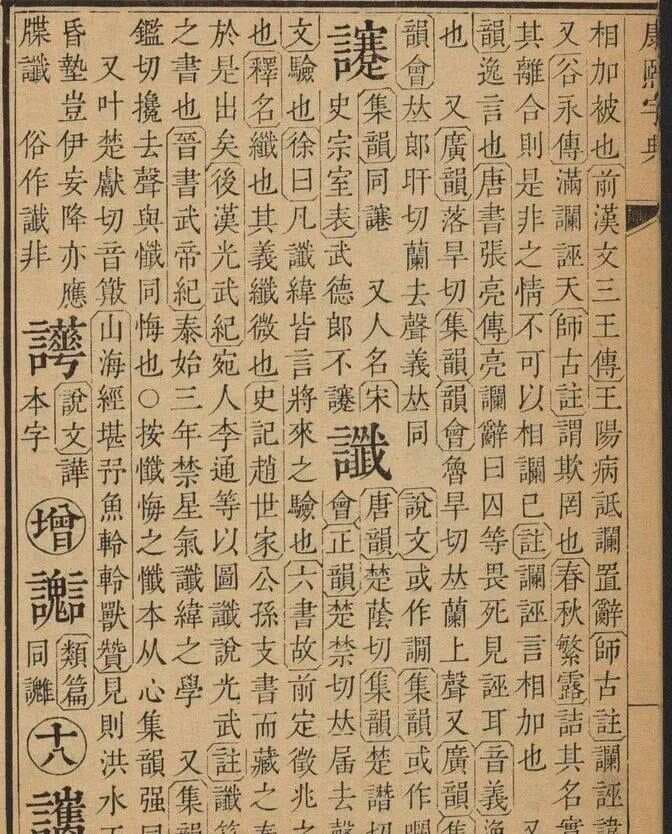 康熙字典
相加被也前漢文三王傳王陽病詆讕置辭師古註讕誣諱
又谷永傳滿讕誣天師古註謂欺罔也春秋繁露詰其名實
其離合則是非之情不可以相讕已註讕誣言相加也 又
韻逸言也唐書張亮傳亮讕辭曰囚等畏死見誣耳音義逸
也 又廣韻落旱切集韻韻會魯旱切𠀤蘭上聲又廣韻集
韻會𠀤郎旰切蘭去聲義𠀤同 說文或作譋集韻或作
集韻同 又人名宋
史宗室表武德郎不
讖
唐韻楚蔭切集韻楚譖切
會正韻楚禁切𠀤屆去聲
文驗也徐曰凡讖緯皆言將來之驗也六書故前定徵兆之
也釋名纖也其義纖微也史記趙世家公孫支書而藏之秦
於是出矣後漢光武紀宛人李通等以圖讖說光武註讖符
之書也晉書武帝紀泰始三年禁星氣讖緯之學 又集
鑑切攙去聲與懺同悔也○按懺悔之懺本从心集韻强同
又叶楚獻切音 山海經堪㐨魚軨軨獸贊見則洪水
昏墊豈伊妄降亦應
牒讖 俗作䜟非
說文譁
本字
增
類篇
同讎
十八